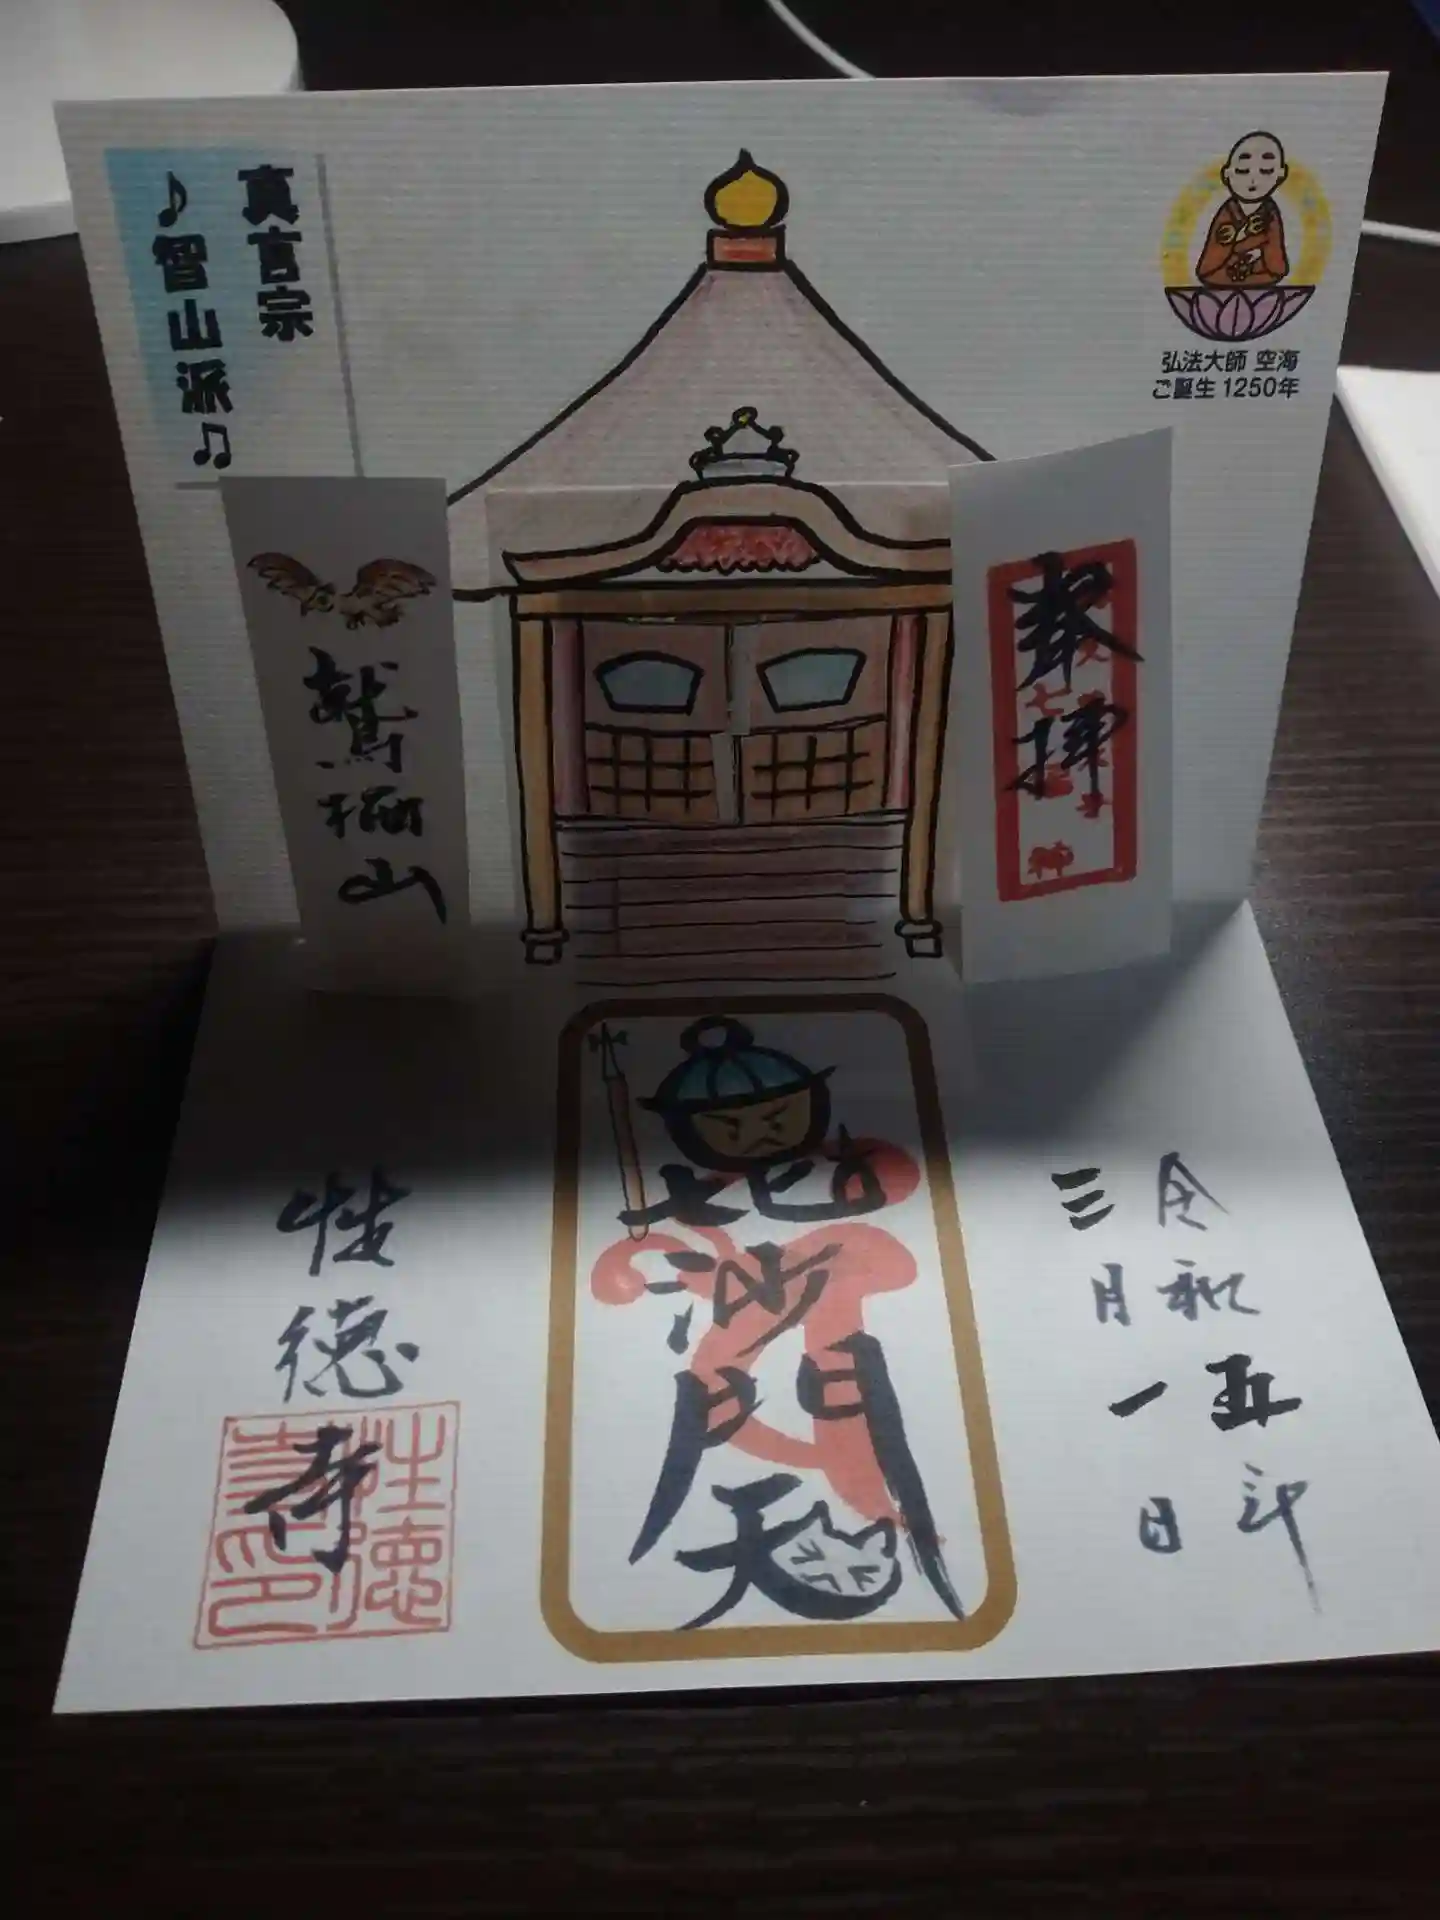 真言宗
♪智山派♫
弘法大師 空海
ご誕生1250年
奉拝
鷲栖山
令和五年
三月一日
毘沙門天
性徳寺